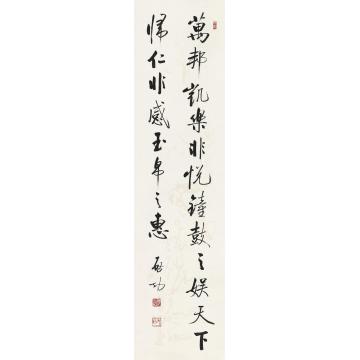 萬邦凱樂非悅鐘鼓之娱天下
歸仁非感玉帛之惠
啟功